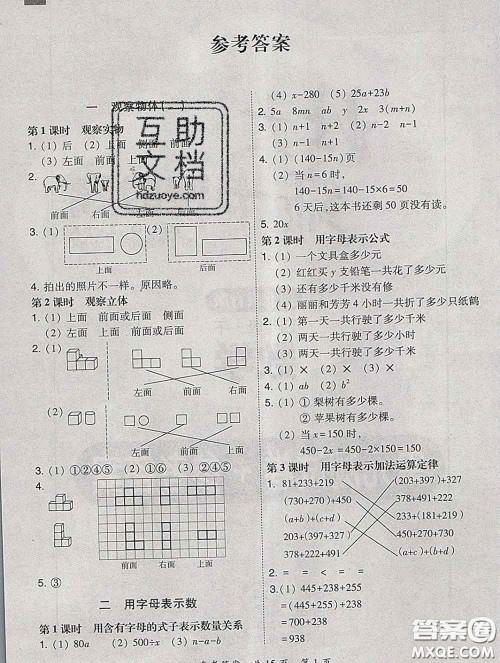 参考答案
一 观察物体(二)
第1课时 观察实物
1. (1) 后 (2) 上面 侧面
(3) 左面 前面 上面
2.
前面 右面 左面
3. (1) (2)
上面 后面
4. 拍出的照片不一样。原因略。
第2课时 观察立体
1. (1) 上面 前面或后面 侧面
(2) 上面 前面或后面 侧面
2. (1)
左面 前面 上面
(2)
左面 前面 上面
3. (1) ①②④⑤ (2) ①②④⑤
4.
上面 前面 左面
5. ③
二 用字母表示数
第1课时 用含有字母的式子表示数量关系
1. (1) 80a (2) 500÷x (3) n-a-b
(4) x-280 (5) 25a+23b
2. 5a 8mn ab y 2x 3(m+n)
3. (1) n+1 n+2 (2) n-1 n+1
4. (1) (140-15n)页
(2) 当n=6时,
140-15n=140-15×6=50
6天后,这本书还剩50页没有读。
5. 20x
第2课时 用字母表示公式
1. (1) 一个文具盒多少元
(2) 红红买y支铅笔一共花了多少元
(3) 还有多少千米没有修
(4) 丽丽和芳芳4小时一共折了多少只纸鹤
2. (1) 第一天一共行驶了多少千米
(2) 两天一共行驶了多少小时
(3) 两天一共行驶了多少千米
3. (1) × (2) × (3) × (4) ×
4. (1) ab (2) b²
5. (1) ① 梨树有多少棵。
② 苹果树有多少棵。
(2) 当x=150时,
450-2x=450-2×150=150
第3课时 用字母表示加法运算定律
1. 81+233+219 (203+397)+322
(730+470)+450 378+491+222
(a+b)+(c+d) (81+219)+233
203+(397+322) 450+730+470
378+222+491 (a+c)+(b+d)
2. = = = < = =
3. (1) (445+238+155)
(2) (445+155+238)
互助文档
hdzuoye.com
答案圈
MXQE.COM